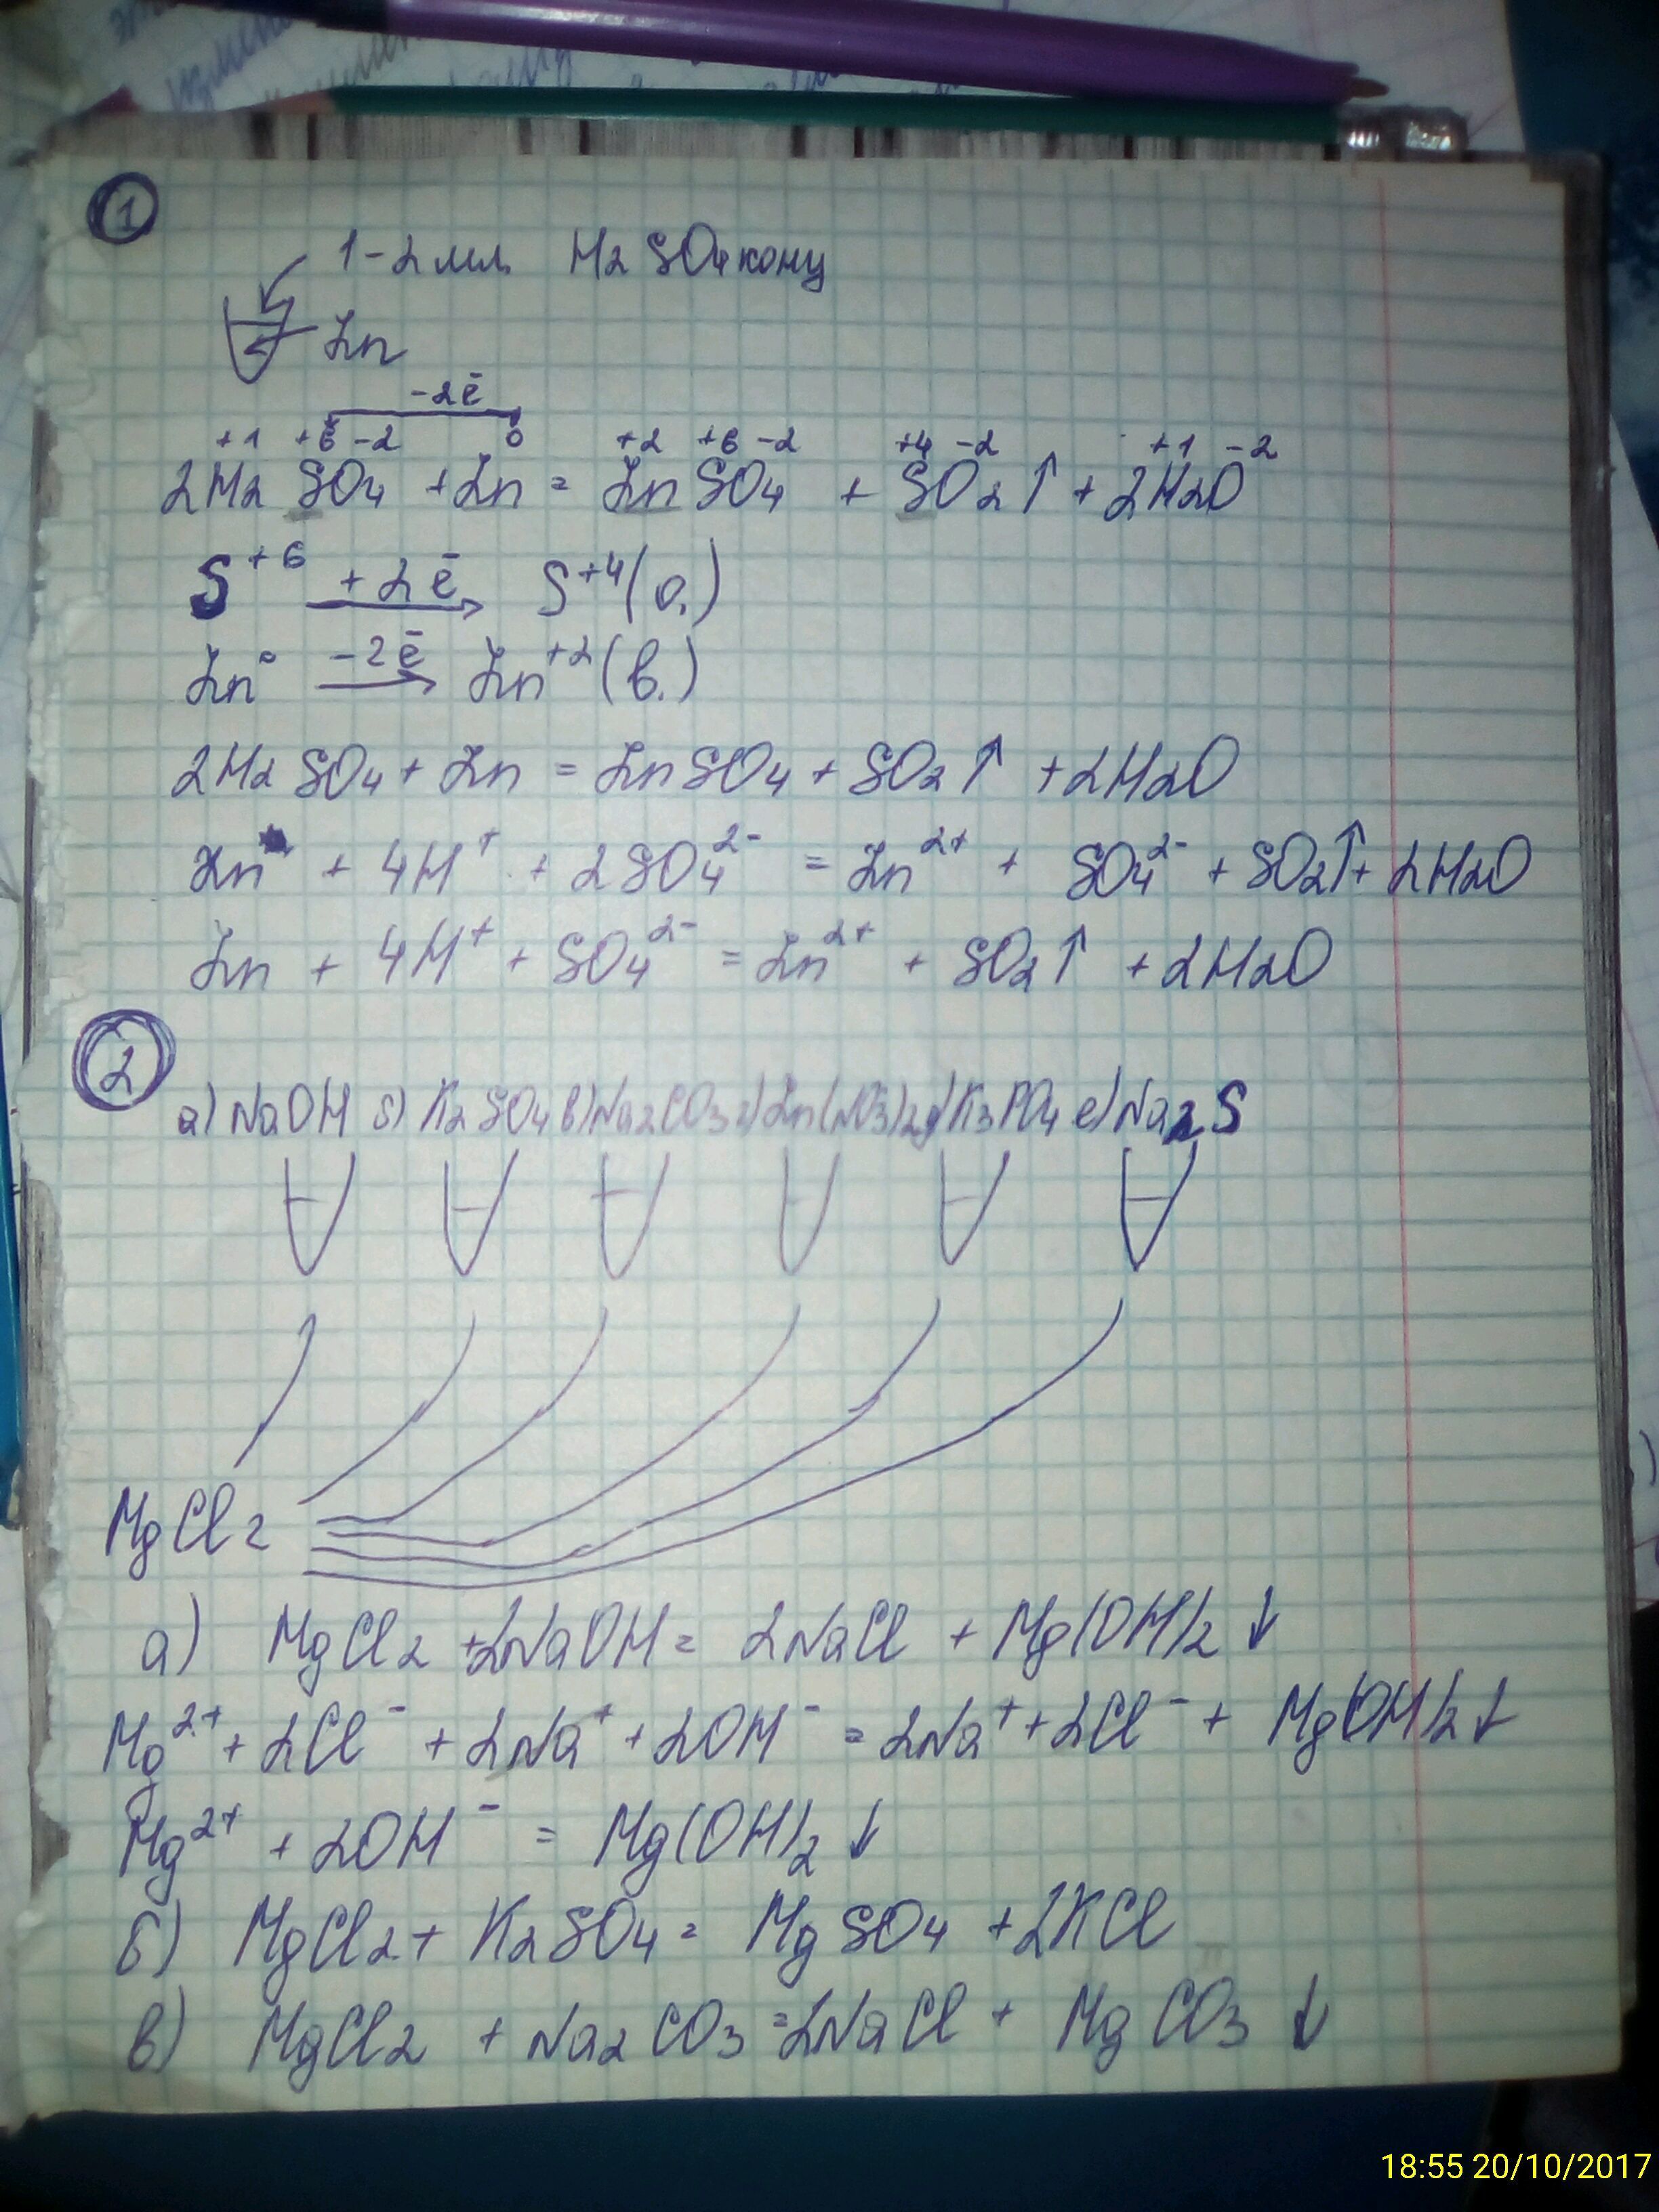 1
1-2 мл H2SO4 конц
Zn
-2ē
+1 +6 -2 0 +2 +6 -2 +4 -2 +1 -2
2H2SO4 + Zn = ZnSO4 + SO2↑ + 2H2O
S+6 +2ē → S+4 (о.)
Zn0 -2ē → Zn+2 (в.)
2H2SO4 + Zn = ZnSO4 + SO2↑ + 2H2O
Zn + 4H+ + 2SO4 2- = Zn2+ + SO4 2- + SO2↑ + 2H2O
Zn + 4H+ + SO4 2- = Zn2+ + SO2↑ + 2H2O
2
а) NaOH б) K2SO4 в) Na2CO3 г) Zn(NO3)2 д) K3PO4 е) Na2S
MgCl2
а) MgCl2 + 2NaOH = 2NaCl + Mg(OH)2↓
Mg2+ + 2Cl- + 2Na+ + 2OH- = 2Na+ + 2Cl- + Mg(OH)2↓
Mg2+ + 2OH- = Mg(OH)2↓
б) MgCl2 + K2SO4 = MgSO4 + 2KCl
в) MgCl2 + Na2CO3 = 2NaCl + MgCO3↓
18:55 20/10/2017